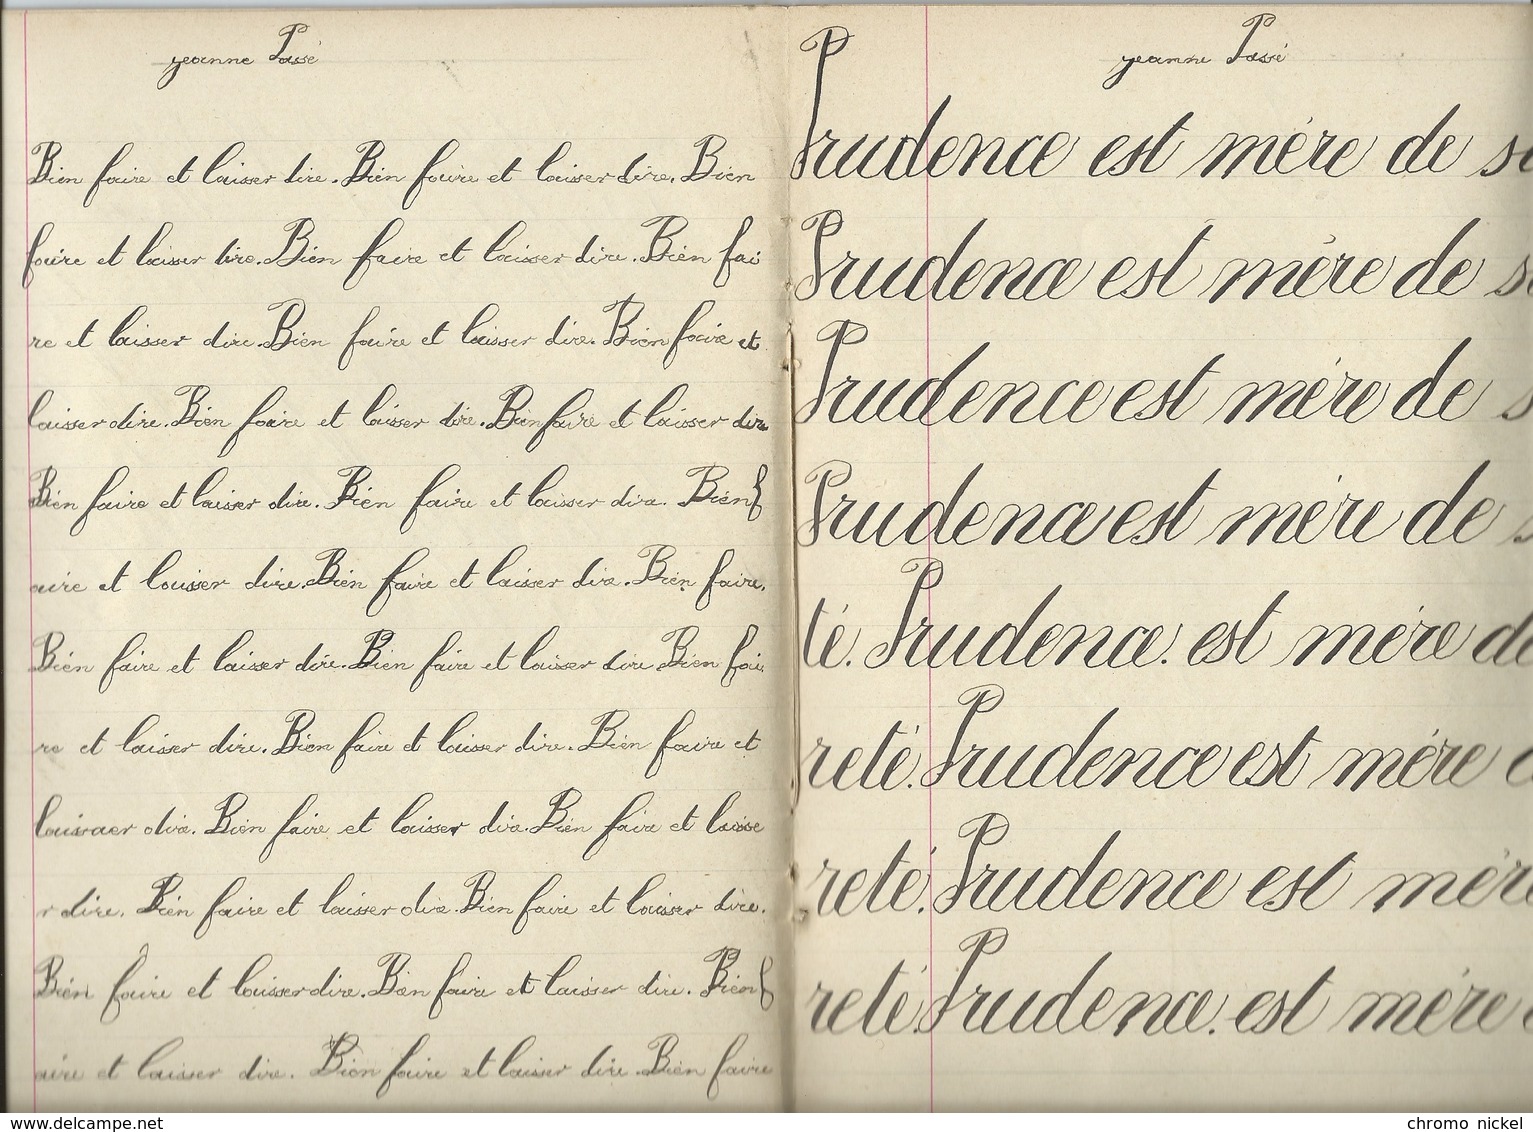 Jeanne Passé
Bien faire et laisser dire. Bien faire et laisser dire. Bien
faire et laisser dire. Bien faire et laisser dire. Bien fai
re et laisser dire. Bien faire et laisser dire. Bien faire et
laisser dire. Bien faire et laisser dire. Bien faire et laisser dire
Bien faire et laisser dire. Bien faire et laisser dire. Bien f
aire et laisser dire. Bien faire et laisser dire. Bien faire.
Bien faire et laisser dire. Bien faire et laisser dire. Bien fai
re et laisser dire. Bien faire et laisser dire. Bien faire et
laisser dire. Bien faire et laisser dire. Bien faire et laisse
r dire. Bien faire et laisser dire. Bien faire et laisser dire.
Bien faire et laisser dire. Bien faire et laisser dire. Bien f
aire et laisser dire. Bien faire et laisser dire. Bien faire
Jeanne Passé
Prudence est mère de s
Prudence est mère de s
Prudence est mère de s
Prudence est mère de s
té. Prudence. est mère de
reté. Prudence est mère
reté. Prudence est mère
reté. Prudence. est mère
www.delcampe.net
chromo nickel